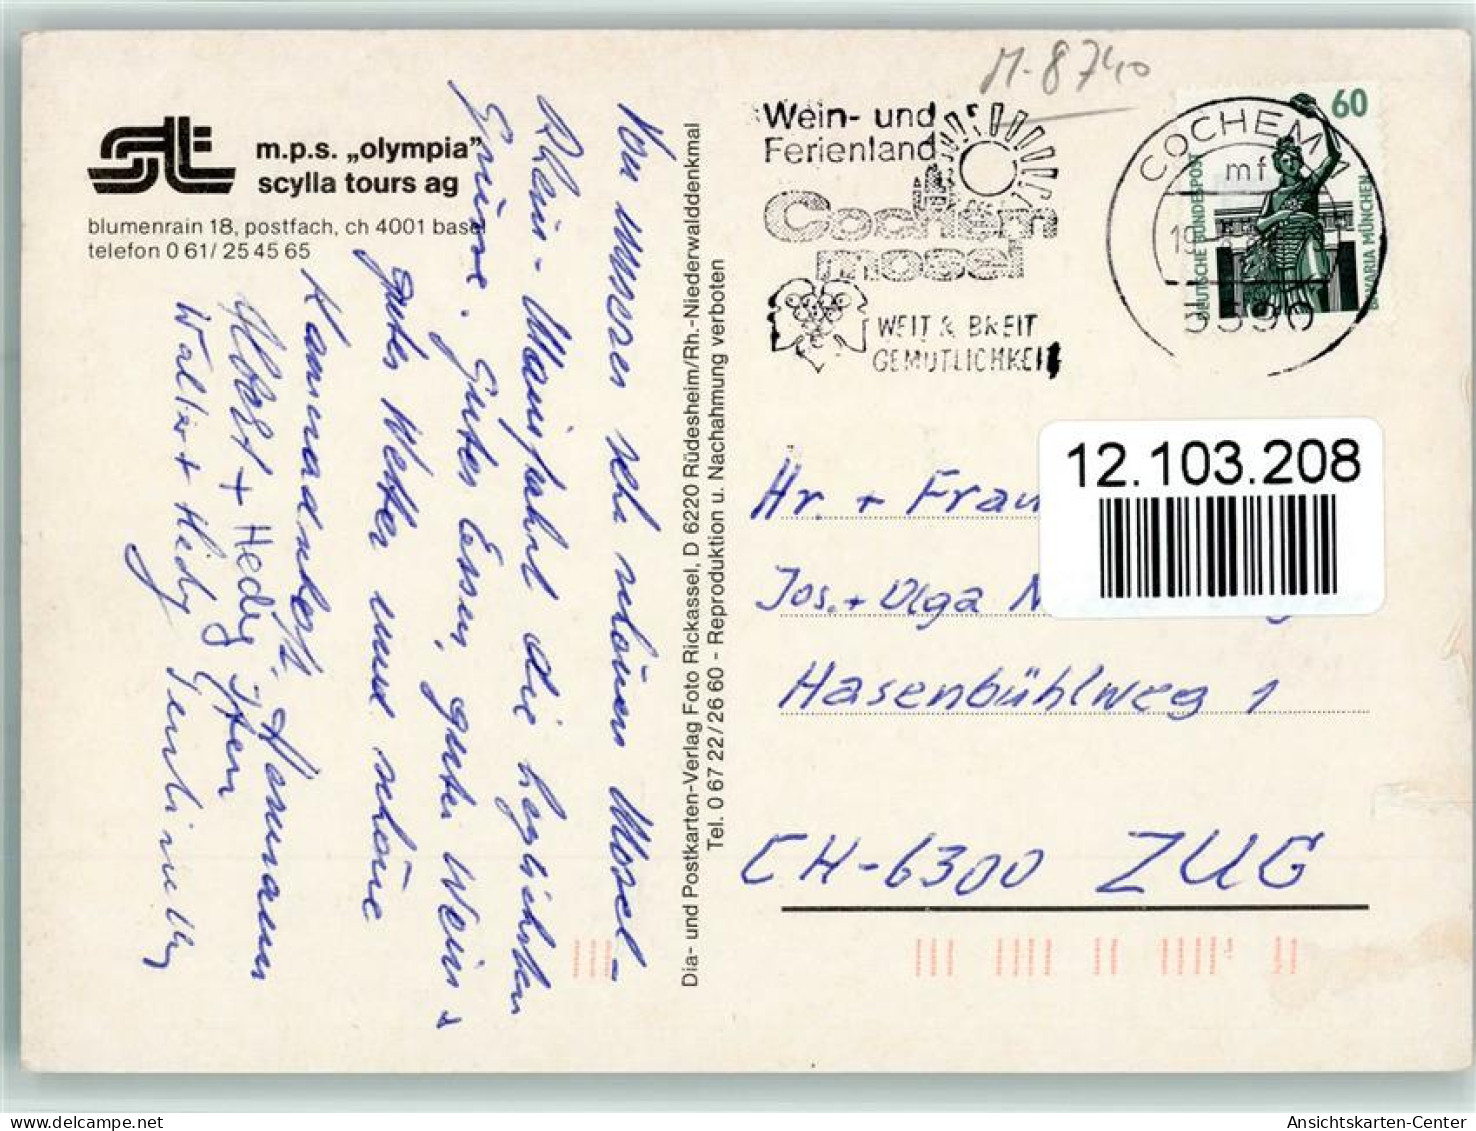 M-8740
m.p.s. „olympia"
scylla tours ag
blumenrain 18, postfach, ch 4001 basel
telefon 0 61/ 25 45 65
Von unserer sehr schönen Mosel-
Rhein-Mainfahrt die herzlichsten
Grüsse. Gutes Essen, guter Wein +
gutes Wetter und schöne
Kameradschaft. Hermann
+ Hedy
Walter + Hedy
Dia- und Postkarten-Verlag Foto Rickassel, D 6220 Rüdesheim/Rh.-Niederwalddenkmal
Tel. 0 67 22 / 26 60 - Reproduktion u. Nachahmung verboten
Wein- und
Ferienland
Cochem
mosel
WEIT & BREIT
GEMÜTLICHKEIT
COCHEM 1
mf
5590
60
DEUTSCHE BUNDESPOST
BAVARIA MÜNCHEN
12.103.208
Hr. + Frau
Jos. + Olga
Hasenbühlweg 1
CH-6300 ZUG
Ansichtskarten-Center
Ansichtskarten-Center.com